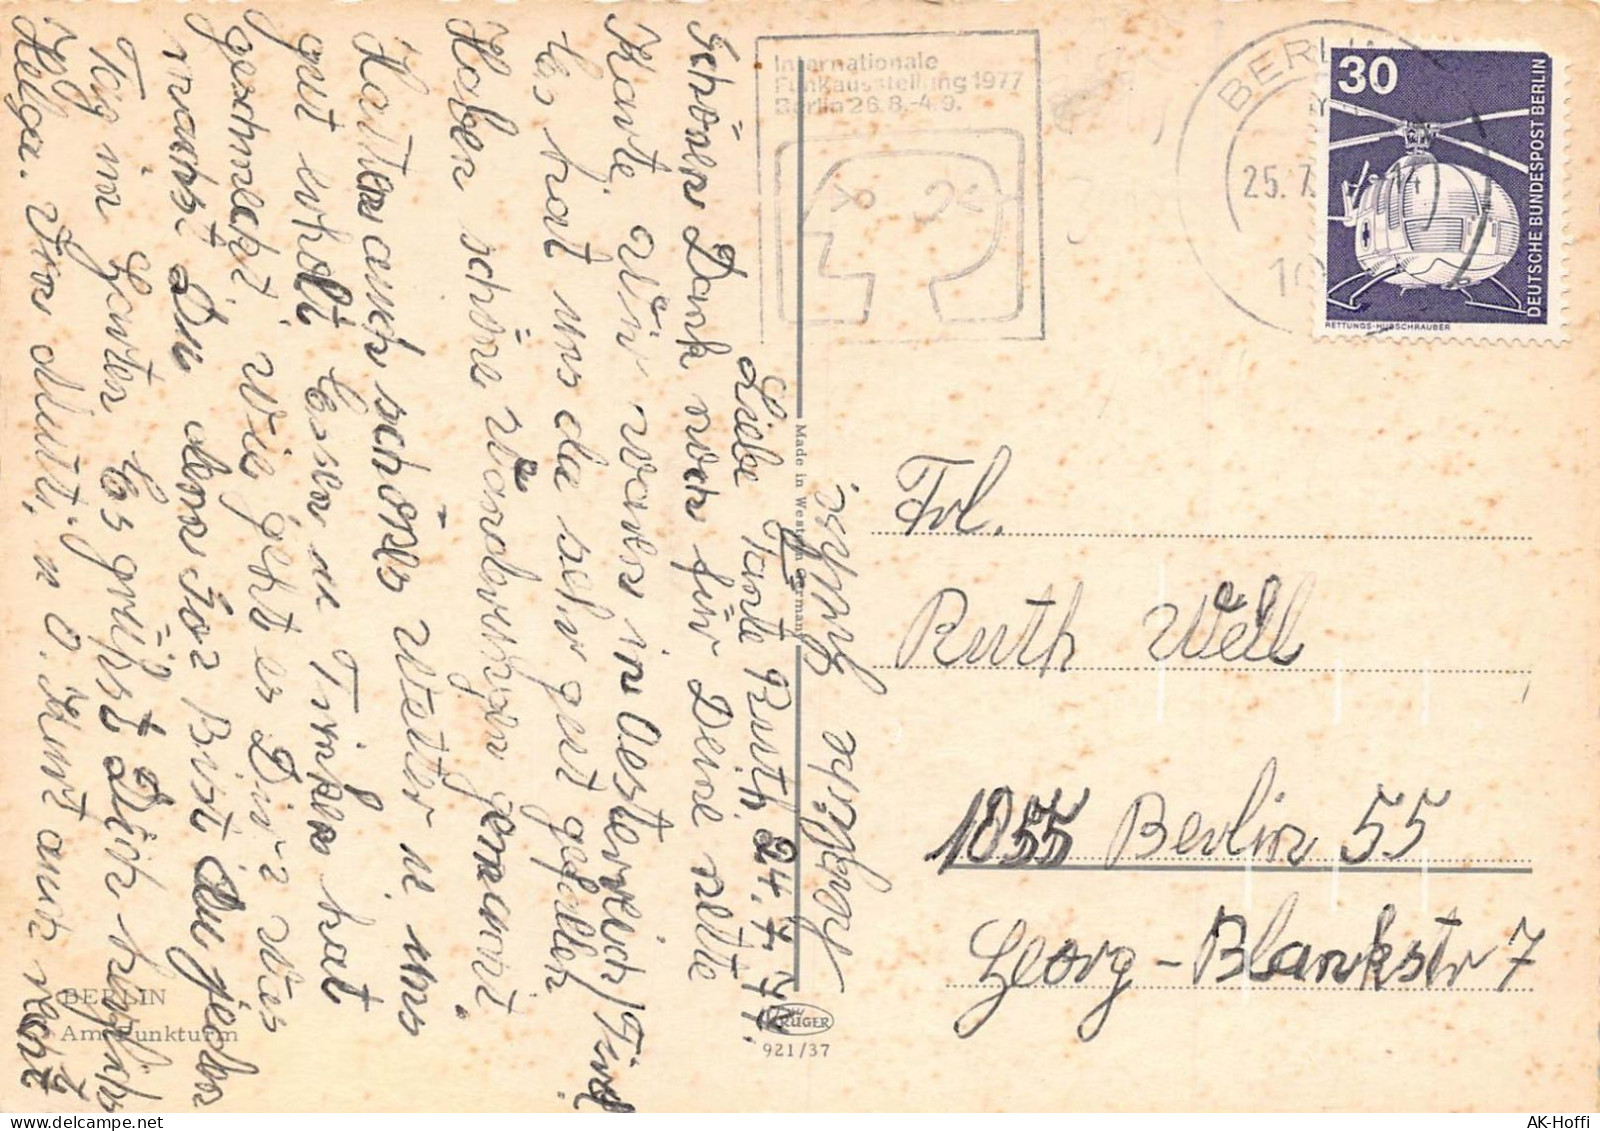 Liebe Tante Ruth 24.7.77.
Schönen Dank noch für Deine nette
Karte. Wir waren in Oesterreich/Tirol
Es hat uns da sehr gut gefallen
Haben schöne Wanderungen gemacht.
Hatten auch schönes Wetter u. uns
gut erholt. Essen u. Trinken hat
geschmeckt. Wie geht es Dir? Was
machst Du den so? Bist Du jeden
Tag im Garten. Es grüßt Dich herzlichst
Helga. Von Mutti, u. O. Kurt auch recht
herzliche Grüße.
Internationale
Funkausstellung 1977
Berlin 26.8.-4.9.
BERLIN
25.7.
30
DEUTSCHE BUNDESPOST BERLIN
RETTUNGS-HUBSCHRAUBER
Made in Western Germany
Frl.
Ruth Well
1055 Berlin 55
Georg-Blankstr 7
BERLIN
Am Funkturm
KRÜGER
921/37
AK-Hoffi